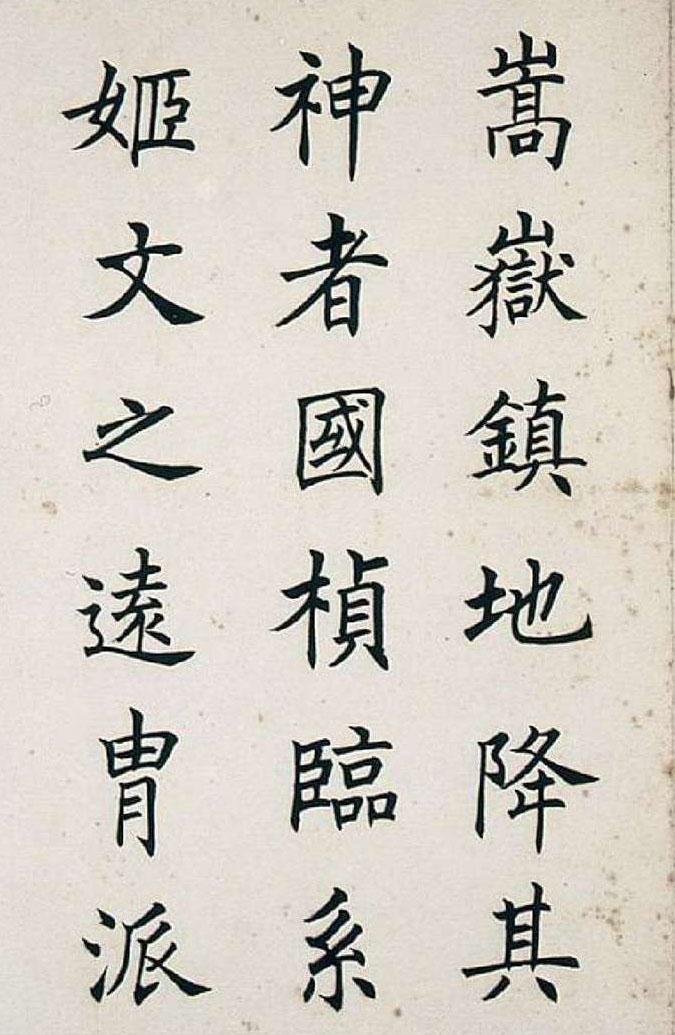 嵩嶽鎮地降其
神者國楨臨系
姬文之遠冑派